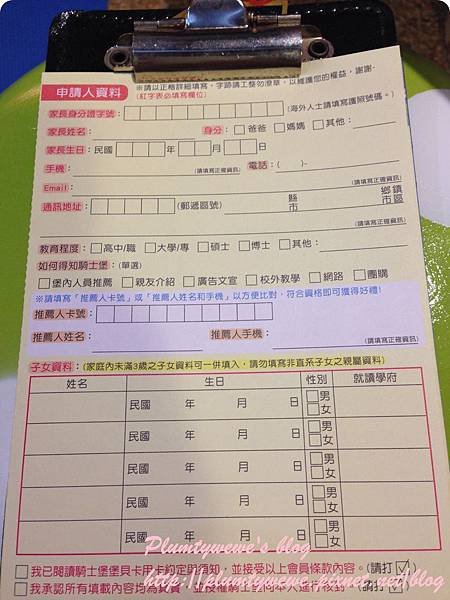 申請人資料
※請以正楷詳細填寫，字跡請工整勿潦草，以維護您的權益，謝謝~
(紅字表必填寫欄位)
家長身分證字號： (海外人士請填寫護照號碼。)
家長姓名： 身分：□爸爸 □媽媽 □其他：
家長生日：民國 年 月 日
手機： (請填寫正確資訊) 電話：( )-
Email： (請填寫正確資訊)
通訊地址： (郵遞區號) 縣市 鄉鎮市區
(請填寫正確資訊)
教育程度：□高中/職 □大學/專 □碩士 □博士 □其他：
如何得知騎士堡：(單選)
□堡內人員推薦 □親友介紹 □廣告文宣 □校外教學 □網路 □團購
※請填寫「推薦人卡號」或「推薦人姓名和手機」以方便比對，符合資格即可獲得好禮!
推薦人卡號：
推薦人姓名： 推薦人手機： (請填寫正確資訊)
子女資料：(家庭內未滿3歲之子女資料可一併填入，請勿填寫非直系子女之親屬資料)
姓名 生日 性別 就讀學府
民國 年 月 日 □男 □女
民國 年 月 日 □男 □女
民國 年 月 日 □男 □女
民國 年 月 日 □男 □女
民國 年 月 日 □男 □女
Plumtywewe's blog
□我已閱讀騎士堡堡貝卡用卡約定與須知，並接受以上會員條款內容。(請打✓)
□我承認所有填載內容均為真實，並授權騎士堡向本人進行核對。(請打✓)
http://plumtywewe.pixnet.net/blog